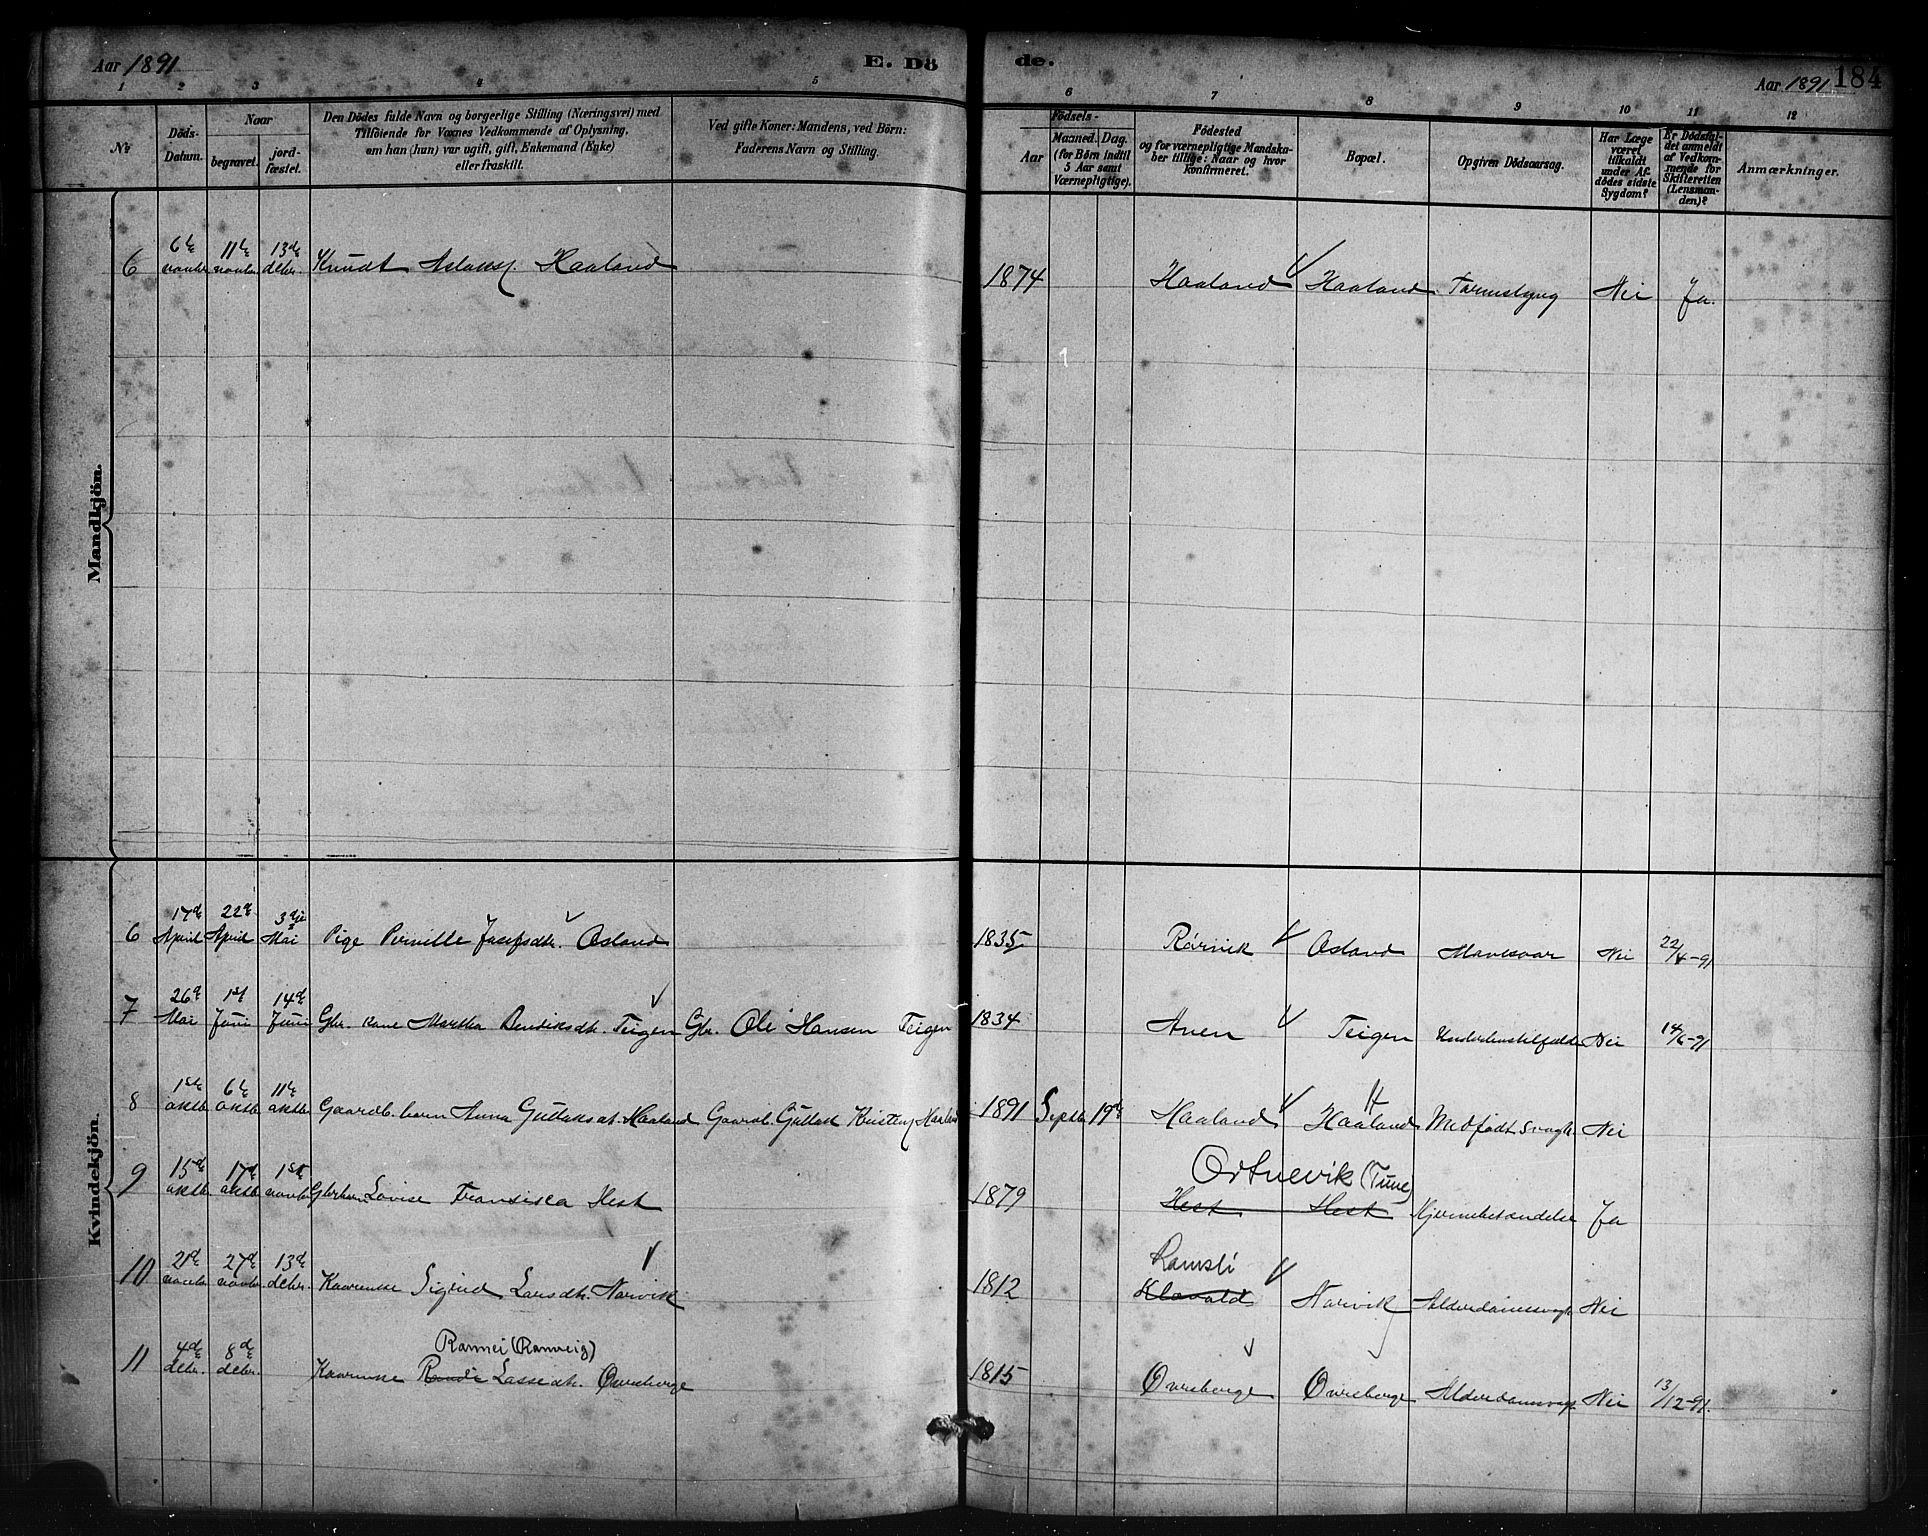 Aar 1891 E. Dö de. Aar 1891 184
1 2 3 4 5 6 7 8 9 10 11 12
No
Döds-Datum.
Naar
begravet.
jord-fæstet.
Den Dödes fulde Navn og borgerlige Stilling (Næringsvei) med
Tilföiende for Voxnes Vedkommende af Oplysning,
om han (hun) var ugift, gift, Enkemand (Enke)
eller fraskilt.
Ved gifte Koner: Mandens, ved Börn:
Faderens Navn og Stilling.
Födsels-
Aar
Maaned. Dag.
(for Börn indtil
5 Aar samt
Værnepligtige).
Födested
og for værnepligtige Mandska-
ber tillige: Naar og hvor
konfirmeret.
Bopæl.
Opgiven Dödsaarsag.
Har Læge
været
tilkaldt
under Af-
dödes sidste
Sygdom?
Er Dödsfal-
det anmeldt
af Vedkom-
mende for
Skifteretten
(Lensman-
den)?
Anmærkninger.
Mandkjön.
6 6te novbr. 11te novbr. 13de debr. Knudt Aslaks. Haaland 1874 Haaland Haaland Tarmslyng Nei Ja.
Kvindekjön.
6 17de April 22de April 3die Mai Pige Pernille Josefsdtr. Osland 1835 Rörvik Osland Mavesaar Nei 22/4-91
7 26de Mai 1ste Juni 14de Juni Gbr. kone Martha Bendiksdtr. Teigen Gbr. Ole Hansen Teigen 1834 Anen Teigen Nei 14/6-91
8 1ste oktb. 6te oktb. 11te oktb. Gaardb. barn Anna Gullaksdt. Haaland Gaardb. Gullak Kristens. Haaland 1891 Septbr 19de Haaland Haaland Medfödt svagh. Nei
9 15de oktb. 17de oktb. 1ste novbr. Gbrbarn Lovise Fransisca Hest 1879 Ortnevik (Tune) Hest Hest Hjernebetændelse Ja
10 21de novbr. 27de novbr. 13de debr. Kaarenke Sigrid Larsdtr. Narvik 1812 Ramsli Narvik Alderdomssvagh. Nei
11 4de debr. 8de debr. Kaarenke Rannei (Ranveig) Lassedtr. Övreberge 1815 Övreberge Övreberge Alderdomssvagh. Nei 13/12-91.